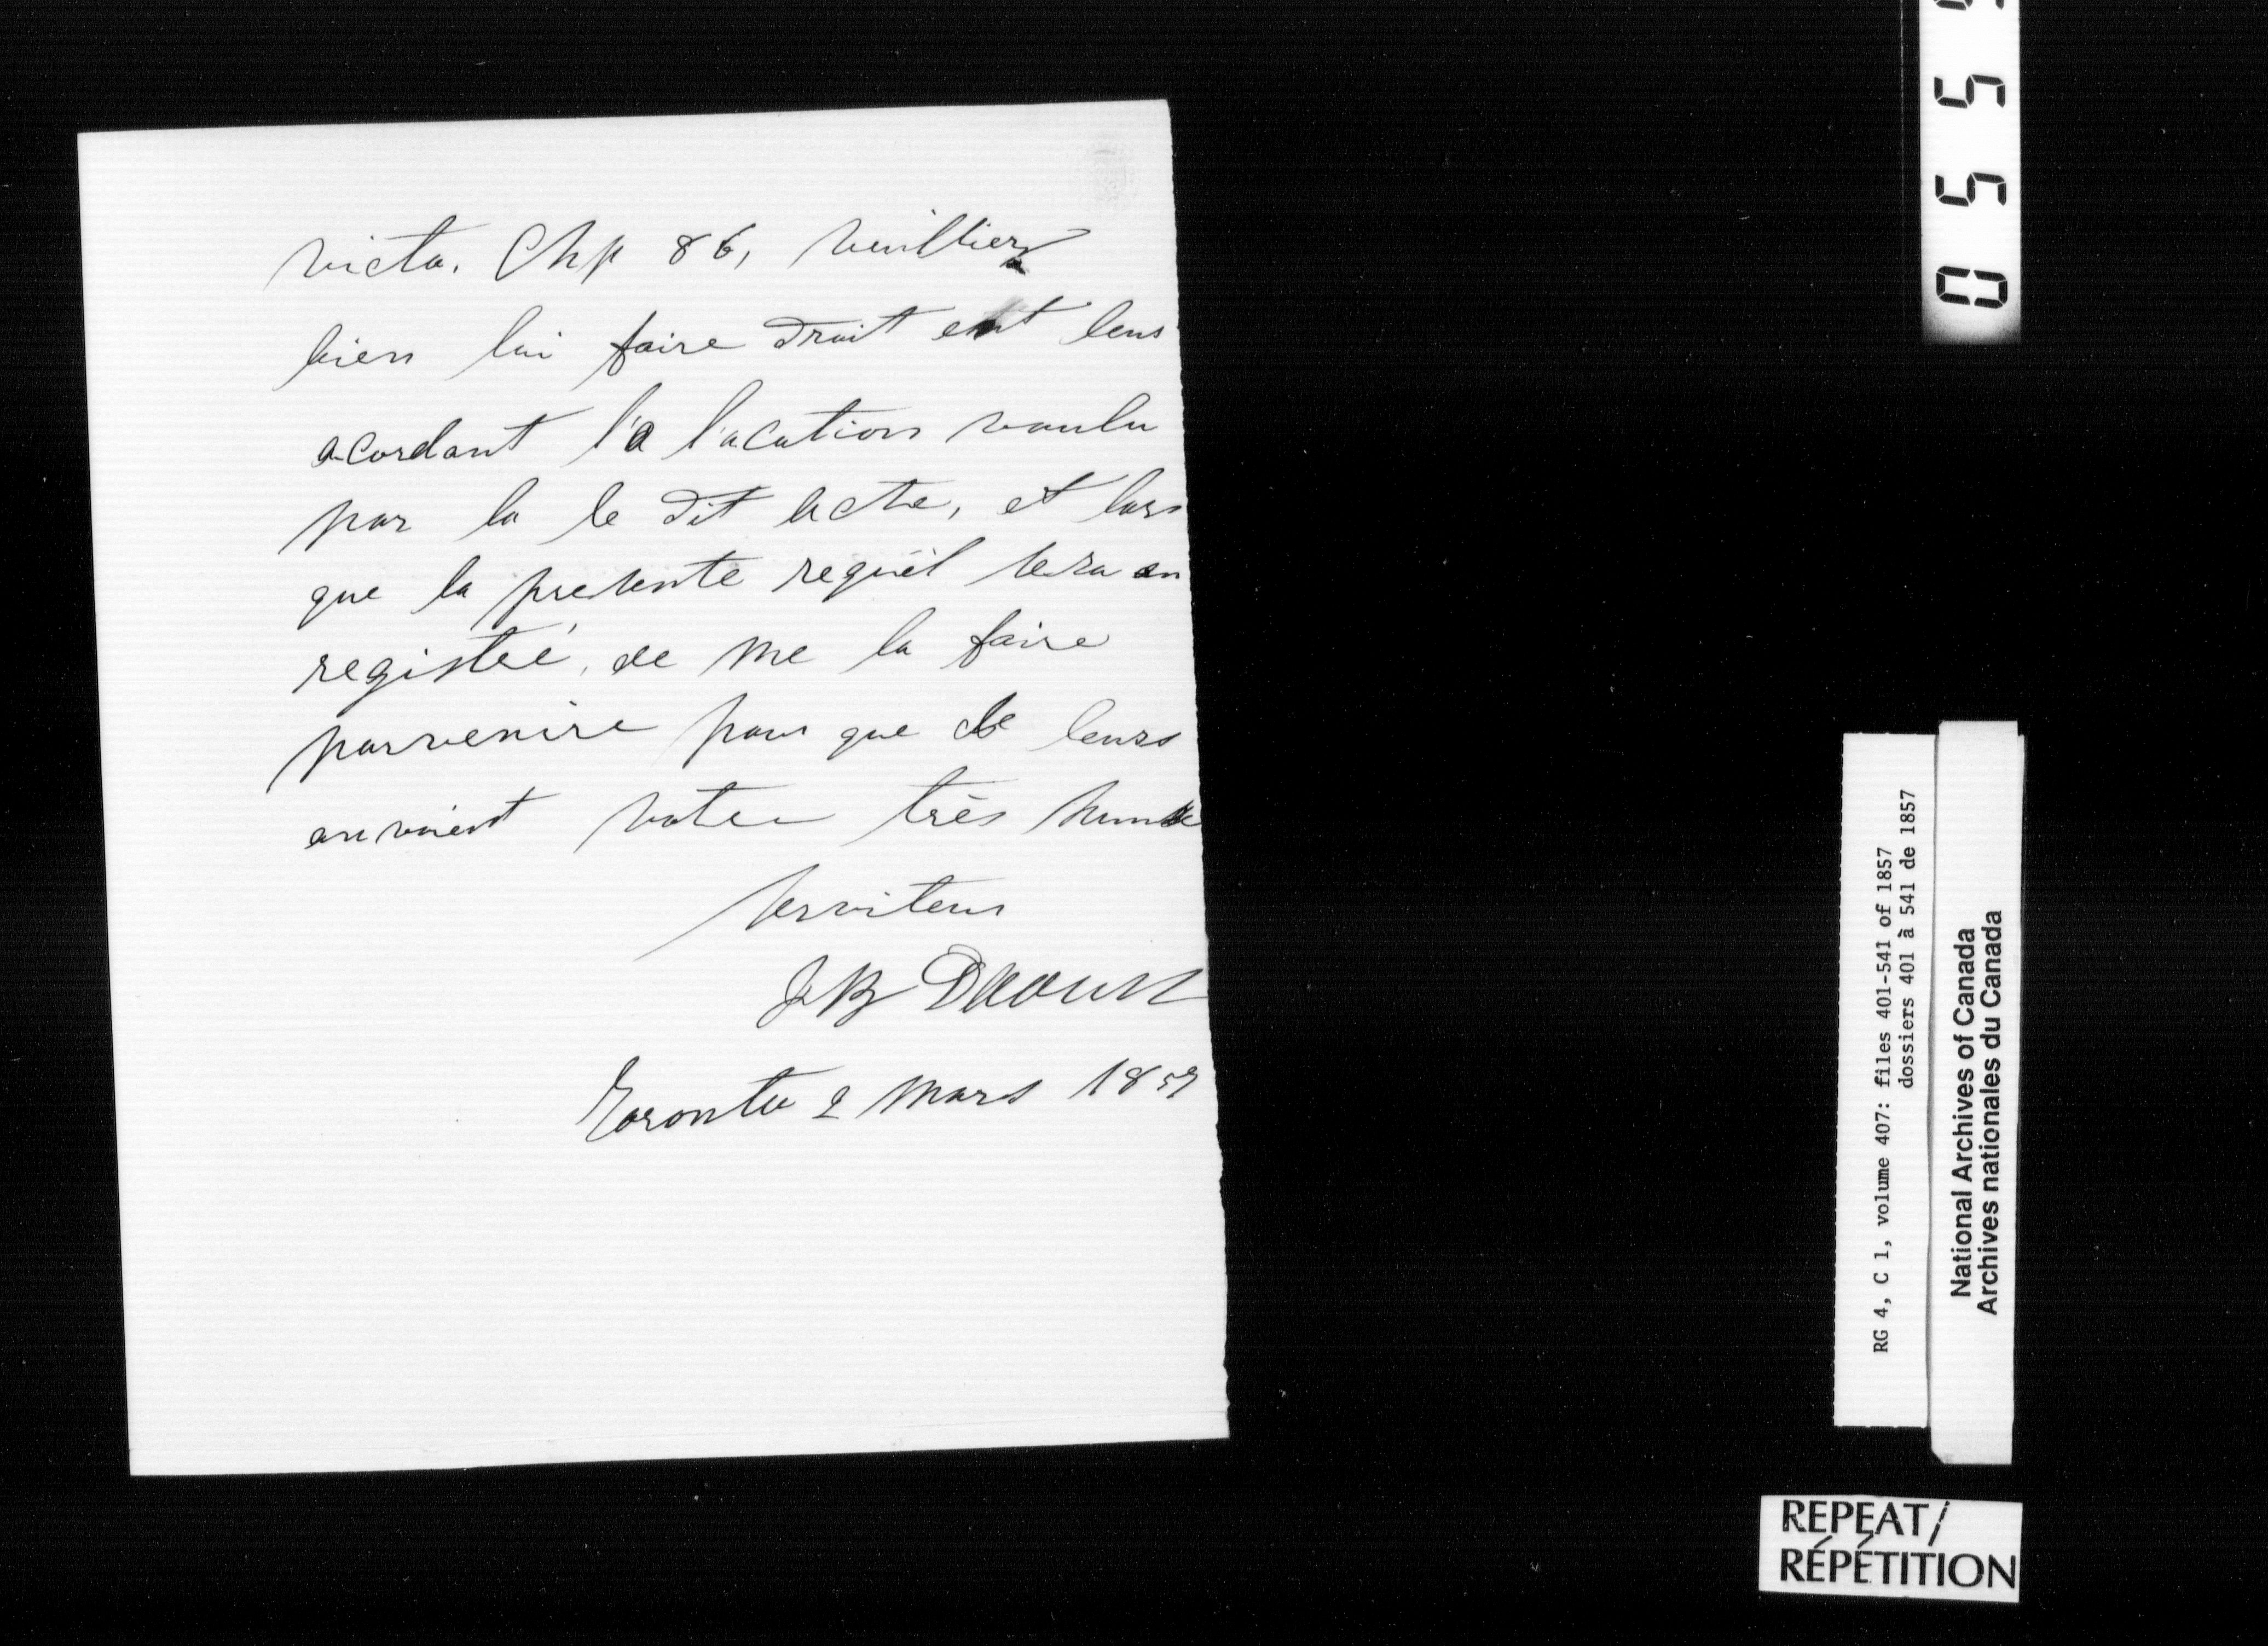 victo. Chp 86, veuilliez
bien lui faire droit ent leus
acordant l'a l'acation voulu
par la le dit acte, et lors
que la presente requêt sera en
registeé, de me la faire
parvenire pour que de leurs
anvoient votre très humble
serviteur
J B Daoust
Toronto 2 Mars 1857
0 5 5 5
RG 4, C 1, volume 407: files 401-541 of 1857
dossiers 401 à 541 de 1857
National Archives of Canada
Archives nationales du Canada
REPEAT/
RÉPÉTITION